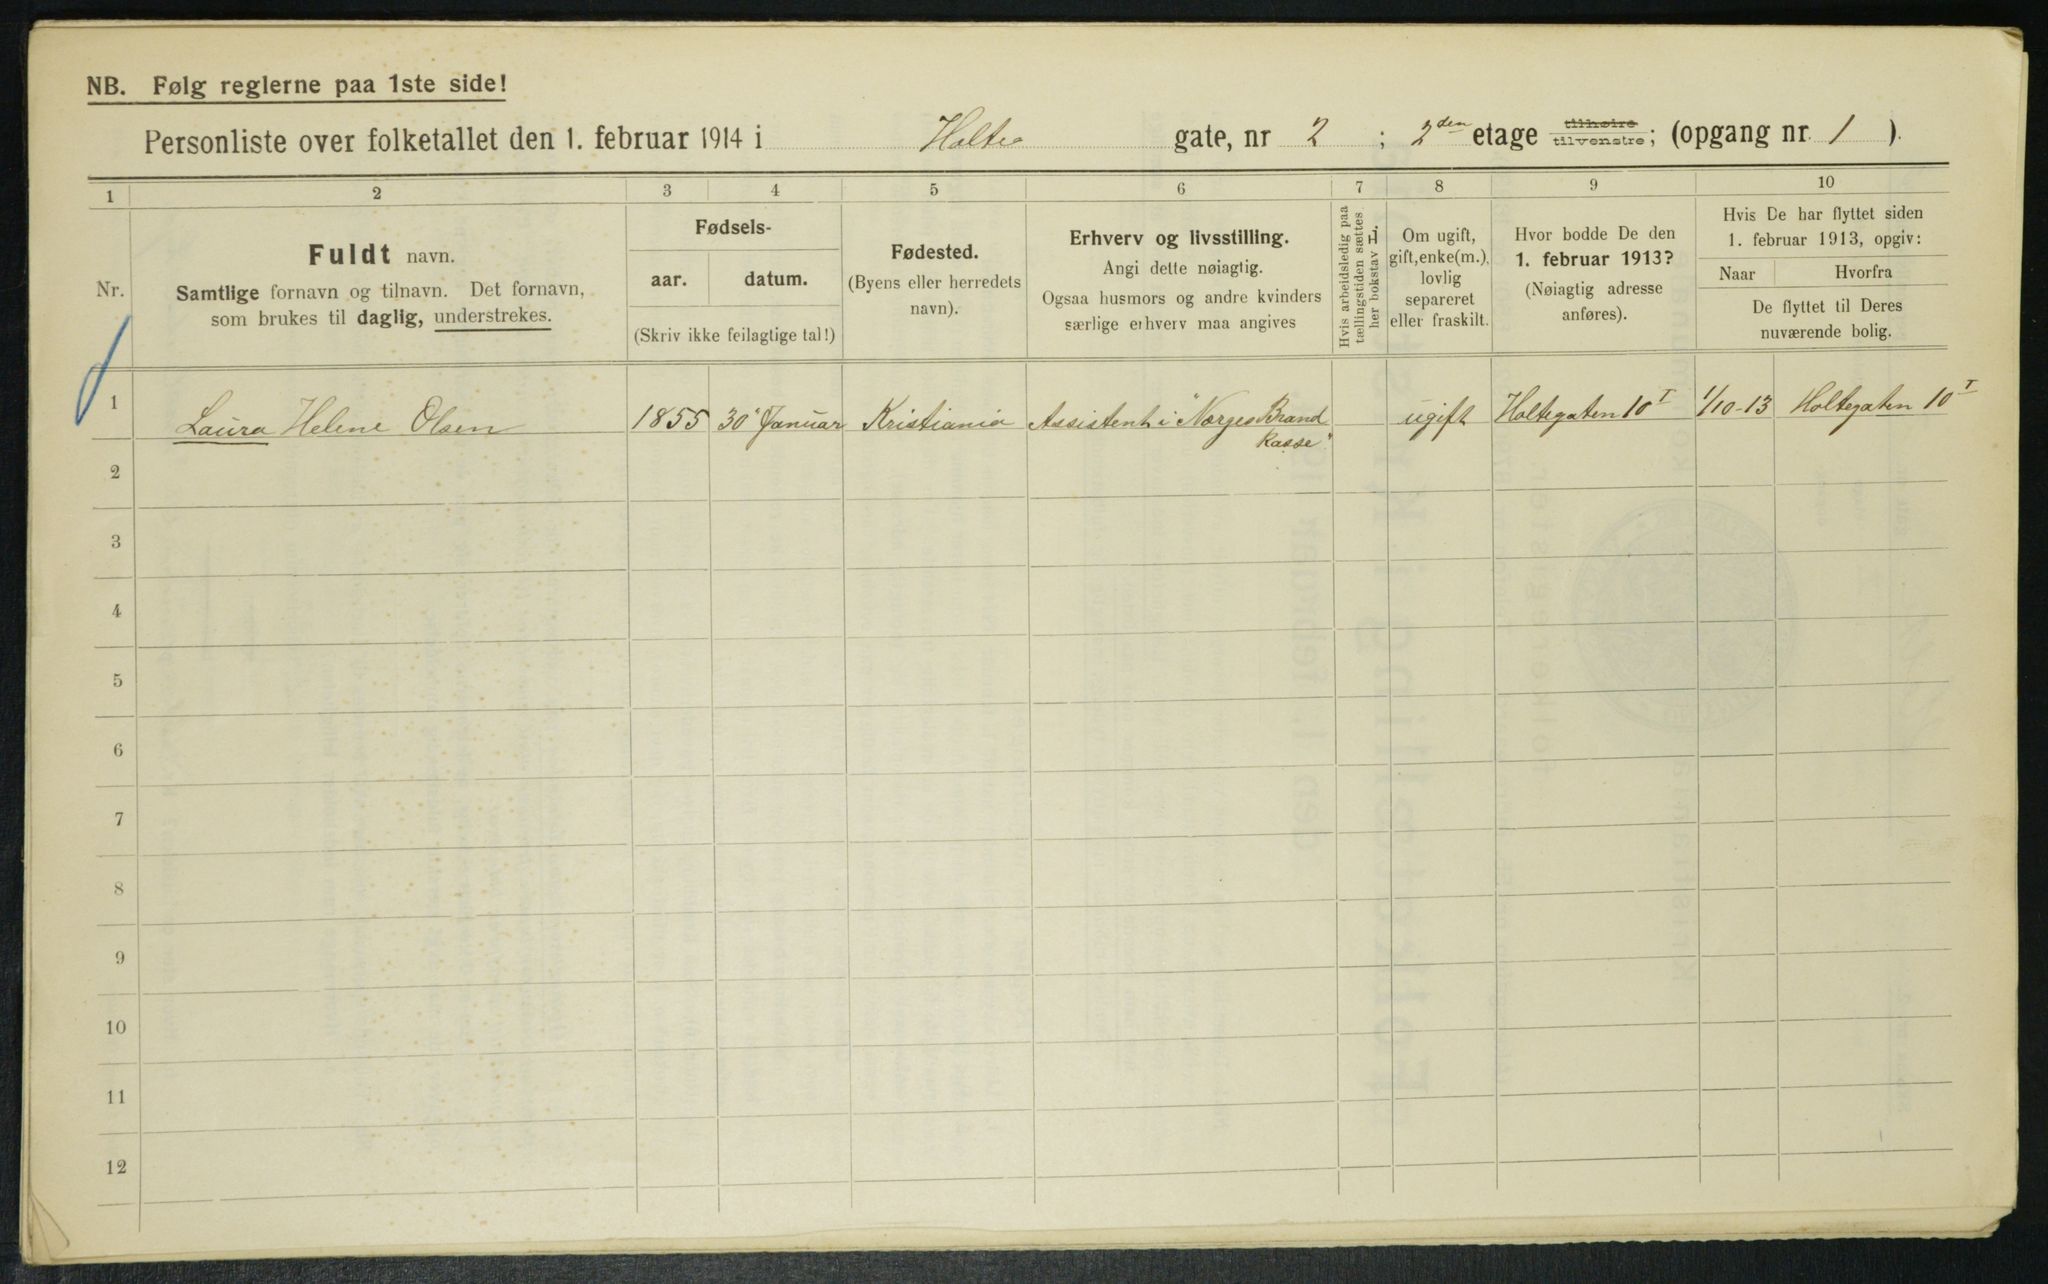 NB. Følg reglerne paa 1ste side!
Personliste over folketallet den 1. februar 1914 i Holte gate, nr 2 ; 2den etage tilhøire tilvenstre; (opgang nr. 1 ).
1 2 3 4 5 6 7 8 9 10
Nr.
Fuldt navn.
Samtlige fornavn og tilnavn. Det fornavn,
som brukes til daglig, understrekes.
Fødsels-
aar. datum.
(Skriv ikke feilagtige tal!)
Fødested.
(Byens eller herredets
navn).
Erhverv og livsstilling.
Angi dette nøiagtig.
Ogsaa husmors og andre kvinders
særlige erhverv maa angives
Hvis arbeidsledig paa
tællingstiden sættes
her bokstav H.
Om ugift,
gift, enke(m.),
lovlig
separeret
eller fraskilt.
Hvor bodde De den
1. februar 1913?
(Nøiagtig adresse
anføres).
Hvis De har flyttet siden
1. februar 1913, opgiv:
Naar Hvorfra
De flyttet til Deres
nuværende bolig.
1 Laura Helene Olsen 1855 30' Januar Kristiania Assistent i "Norges Brand ugift Holtegaten 10 I 1/10-13 Holtegaten 10 I
kasse"
2
3
4
5
6
7
8
9
10
11
12